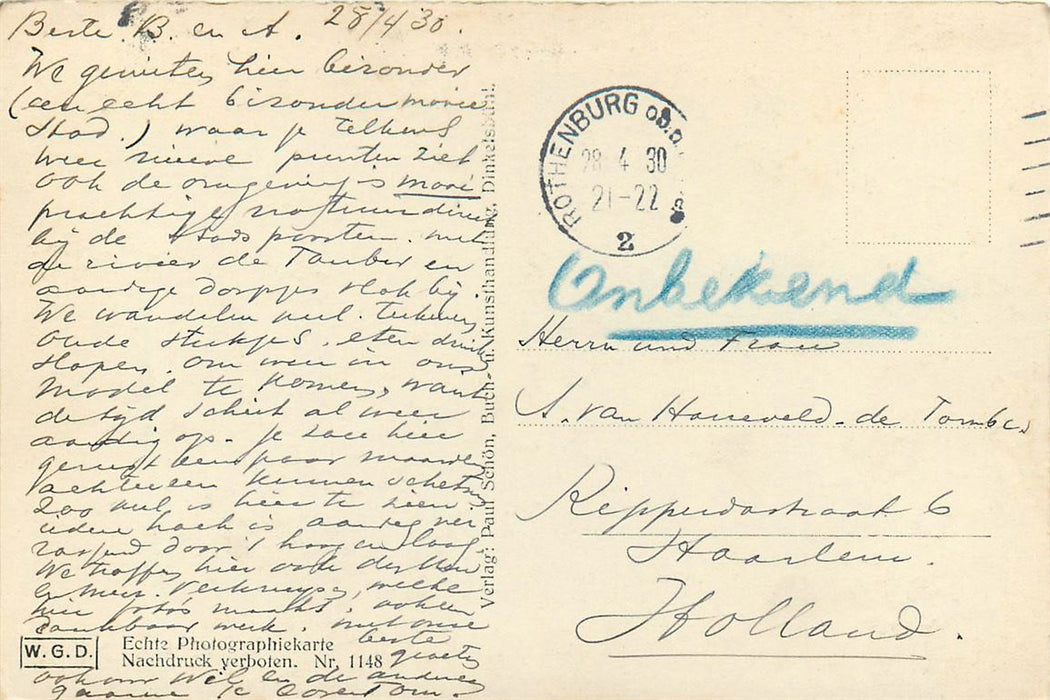 Beste B. en A. 28/4 30.
We genieten hier bizonder
(een echt bizonder mooie
stad.) waar je telkens
weer nieuwe punten ziet
ook de omgeving is mooi
prachtige natuur direct
bij de stadspoorten. met
de rivier de Tauber en
aardige dorpjes vlak bij.
We wandelen veel. teekenen
oude stukjes. eten drinken
slapen. om weer in ons
model te komen, want
de tijd schiet al weer
aardig op. je zou hier
gerust een paar maanden
achtereen kunnen schetsen
zoo veel is hier te zien
iedere hoek is aardig ver
rassend door 't hoog en laag
We troffen hier ook den Heer
en Mevr. welke
hier foto's maakt. ook een
dankbaar werk. met onze
beste
groeten
ook voor Wil en de anderen
W.G.D.
Echte Photographiekarte
Nachdruck verboten. Nr. 1148
Verlag: Paul Schön, Buch- u. Kunsthandlung, Dinkelsbühl.
ROTHENBURG ob.d.
28 4 30
21-22
2
Onbekend
Herrn und Frau
A. van Honeveld. de Tombe
Ripperdastraat 6
Haarlem.
Holland.